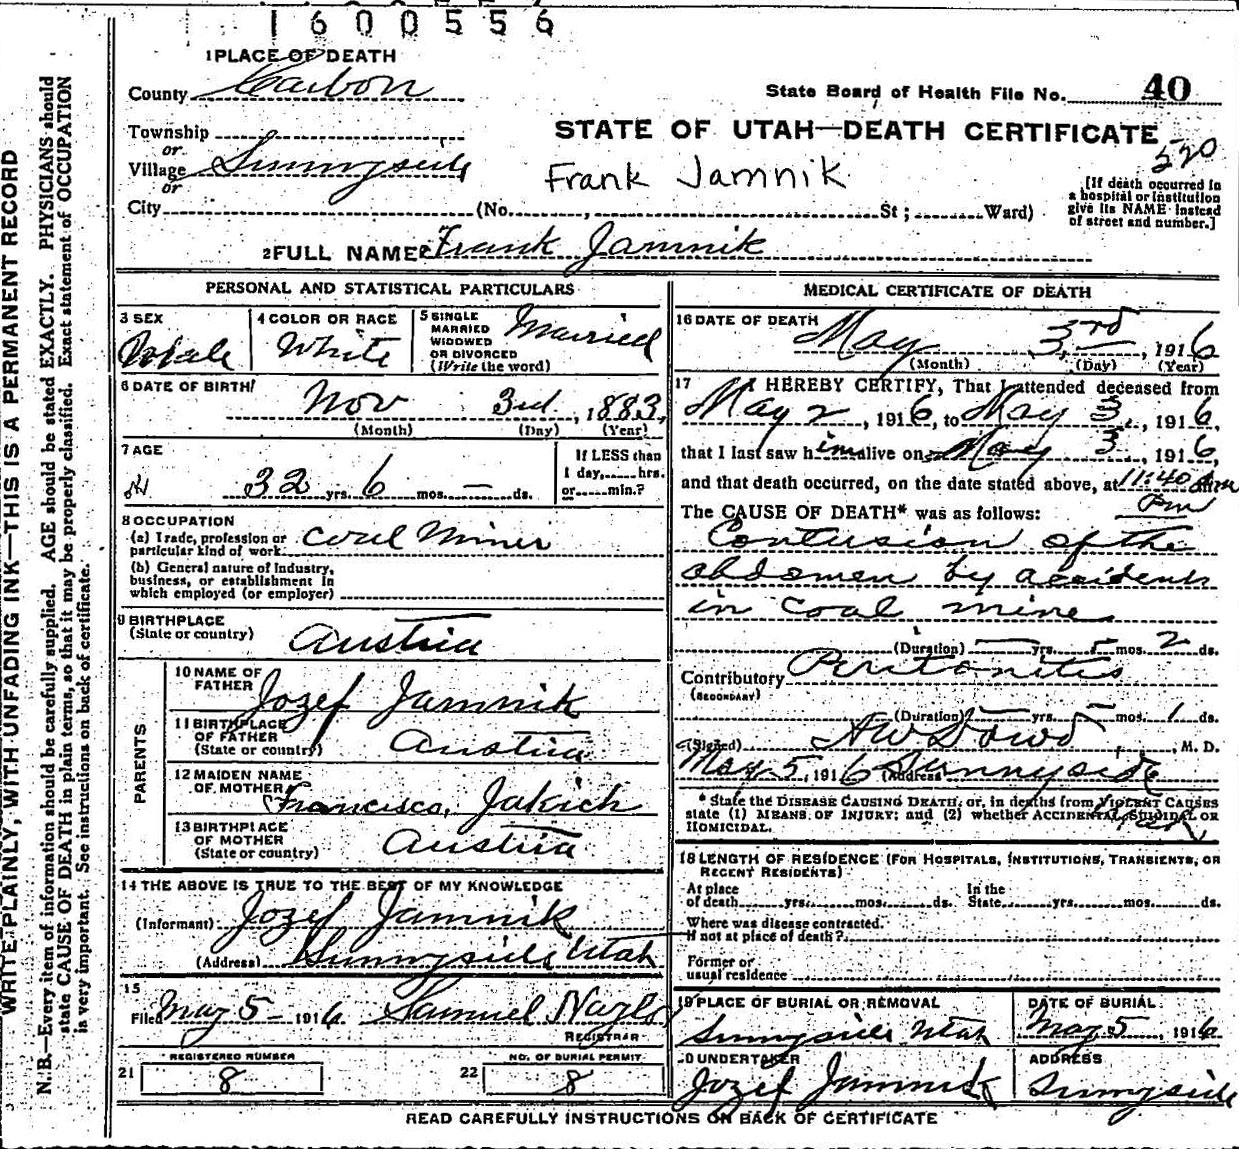 1600556
1 PLACE OF DEATH
County Carbon
State Board of Health File No. 40
Township
or
Village Sunnyside
or
STATE OF UTAH—DEATH CERTIFICATE
520
Frank Jamnik
[If death occurred in
a hospital or institution
give its NAME instead
of street and number.]
City (No. , St ; Ward)
2 FULL NAME Frank Jamnik
PERSONAL AND STATISTICAL PARTICULARS
3 SEX
Male
4 COLOR OR RACE
White
5 SINGLE
MARRIED
WIDOWED
OR DIVORCED
(Write the word)
Married
6 DATE OF BIRTH
Nov 3rd, 1883,
(Month) (Day) (Year)
7 AGE
32 yrs. 6 mos. — ds.
If LESS than
1 day, hrs.
or min.?
8 OCCUPATION
(a) Trade, profession or
particular kind of work Coal Miner
(b) General nature of industry,
business, or establishment in
which employed (or employer)
9 BIRTHPLACE
(State or country) Austria
PARENTS
10 NAME OF
FATHER Jozef Jamnik
11 BIRTHPLACE
OF FATHER
(State or country) Austria
12 MAIDEN NAME
OF MOTHER Francisca Jakich
13 BIRTHPLACE
OF MOTHER
(State or country) Austria
14 THE ABOVE IS TRUE TO THE BEST OF MY KNOWLEDGE
(Informant) Jozef Jamnik
(Address) Sunnyside Utah
15
Filed May 5 - 1916 Samuel Naylo
REGISTRAR
21 REGISTERED NUMBER
8
22 NO. OF BURIAL PERMIT
8
MEDICAL CERTIFICATE OF DEATH
16 DATE OF DEATH
May 3rd, 1916
(Month) (Day) (Year)
17 I HEREBY CERTIFY, That I attended deceased from
May 2, 1916, to May 3, 1916,
that I last saw him alive on May 3, 1916,
and that death occurred, on the date stated above, at 11:40 m
Pm
The CAUSE OF DEATH* was as follows:
Contusion of the
abdomen by accident
in coal mine
(Duration) — yrs. — mos. 2 ds.
Contributory Peritonitis
(SECONDARY)
(Duration) — yrs. — mos. 1 ds.
(Signed) A W Dowd, M. D.
May 5, 1916 (Address) Sunnyside
Utah
* State the DISEASE CAUSING DEATH, or, in deaths from VIOLENT CAUSES
state (1) MEANS OF INJURY; and (2) whether ACCIDENTAL, SUICIDAL OR
HOMICIDAL.
18 LENGTH OF RESIDENCE (FOR HOSPITALS, INSTITUTIONS, TRANSIENTS, OR
RECENT RESIDENTS)
At place
of death yrs. mos. ds.
In the
State yrs. mos. ds.
Where was disease contracted.
if not at place of death?
Former or
usual residence
19 PLACE OF BURIAL OR REMOVAL
Sunnyside Utah
DATE OF BURIAL
May 5, 1916
20 UNDERTAKER
Jozef Jamnik
ADDRESS
Sunnyside
READ CAREFULLY INSTRUCTIONS ON BACK OF CERTIFICATE
WRITE PLAINLY, WITH UNFADING INK—THIS IS A PERMANENT RECORD
N.B.—Every item of information should be carefully supplied. AGE should be stated EXACTLY. PHYSICIANS should
state CAUSE OF DEATH in plain terms, so that it may be properly classified. Exact statement of OCCUPATION
is very important. See instructions on back of certificate.